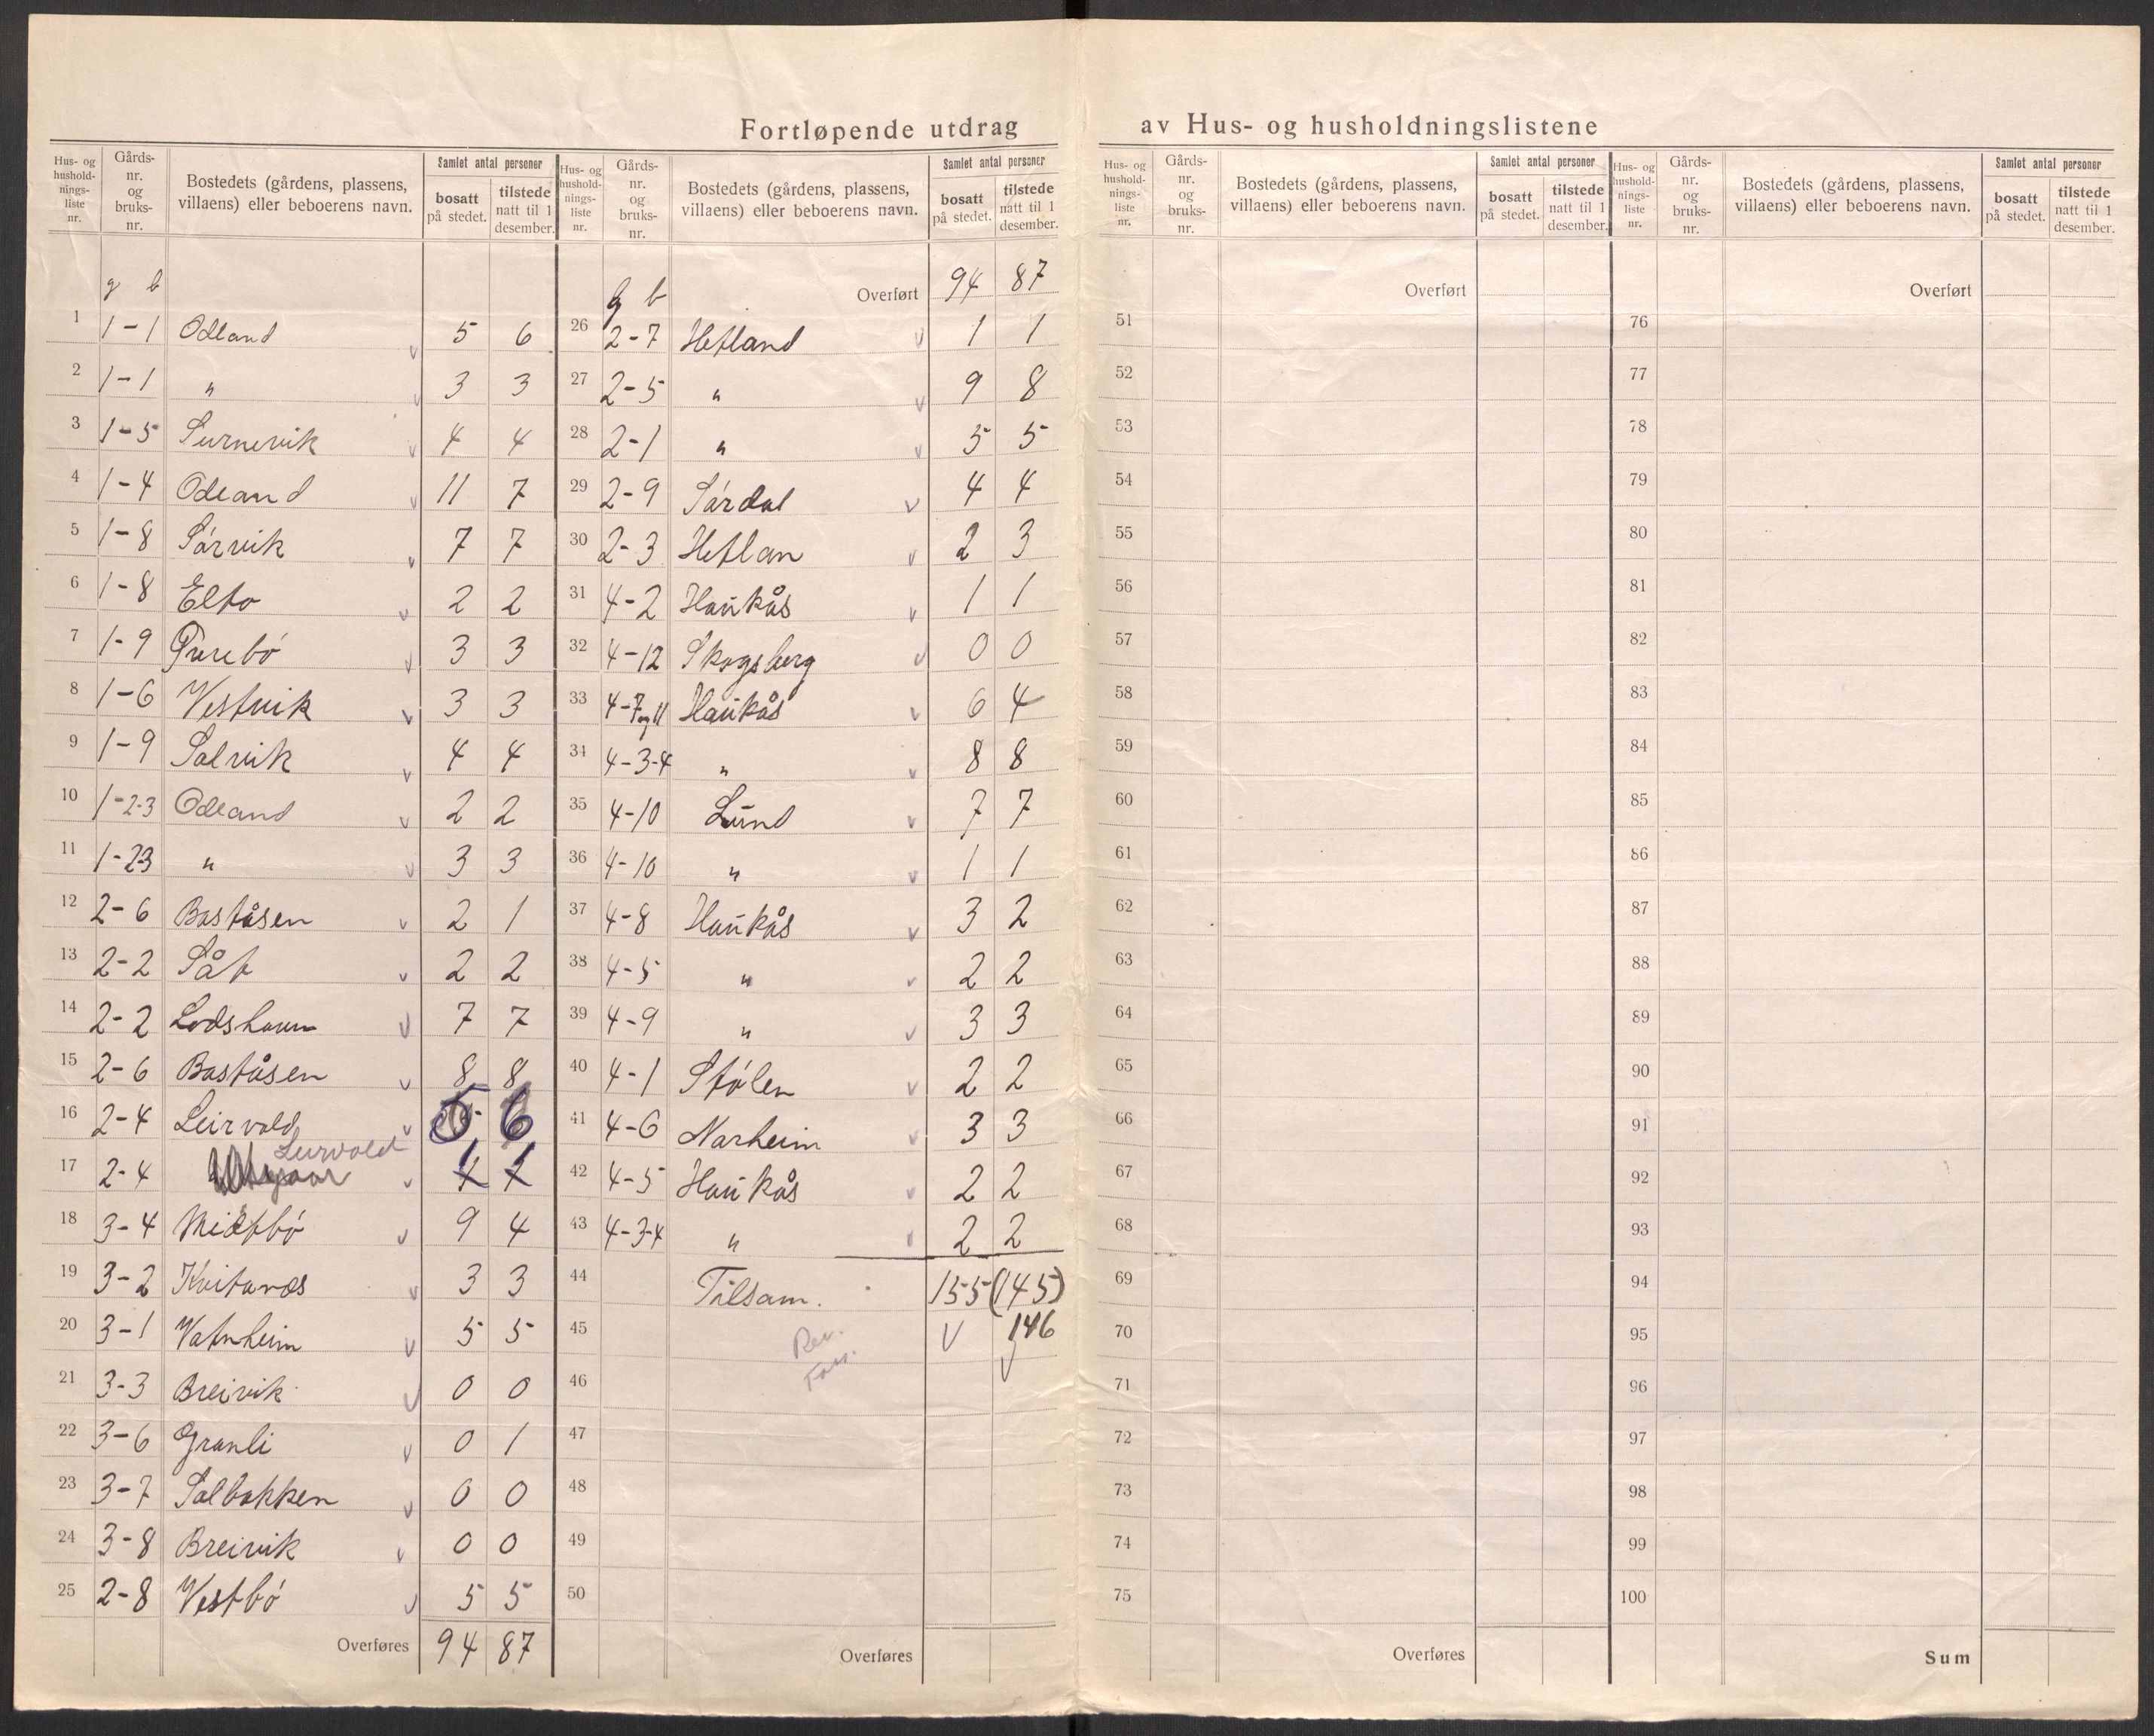 Fortløpende utdrag av Hus- og husholdningslistene
Hus- og hushold-nings-liste nr. Gårds-nr. og bruks-nr. Bostedets (gårdens, plassens, villaens) eller beboerens navn. Samlet antal personer bosatt på stedet. tilstede natt til 1 desember.
g b
1 1-1 Odland 5 6
2 1-1 " 3 3
3 1-5 Surnevik 4 4
4 1-4 Odland 11 7
5 1-8 Sørvik 7 7
6 1-8 Elto 2 2
7 1-9 Purebø 3 3
8 1-6 Vestvik 3 3
9 1-9 Solvik 4 4
10 1-2-3 Odland 2 2
11 1-23 " 3 3
12 2-6 Baståsen 2 1
13 2-2 Såt 2 2
14 2-2 Lodshavn 7 7
15 2-6 Baståsen 8 8
16 2-4 Leirvold 5 6
17 2-4 Leirvold 1 1
18 3-4 Midtbø 9 4
19 3-2 Kvitanes 3 3
20 3-1 Vatnheim 5 5
21 3-3 Breivik 0 0
22 3-6 Granli 0 1
23 3-7 Solbakken 0 0
24 3-8 Breivik 0 0
25 2-8 Vestbø 5 5
Overføres 94 87
Hus- og hushold-nings-liste nr. Gårds-nr. og bruks-nr. Bostedets (gårdens, plassens, villaens) eller beboerens navn. Samlet antal personer bosatt på stedet. tilstede natt til 1 desember.
g b Overført 94 87
26 2-7 Hetland 1 1
27 2-5 " 9 8
28 2-1 " 5 5
29 2-9 Sørdal 4 4
30 2-3 Hetlan 2 3
31 4-2 Haukås 1 1
32 4-12 Skogsberg 0 0
33 4-7 og 11 Haukås 6 4
34 4-3-4 " 8 8
35 4-10 Lund 7 7
36 4-10 " 1 1
37 4-8 Haukås 3 2
38 4-5 " 2 2
39 4-9 " 3 3
40 4-1 Stølen 2 2
41 4-6 Narheim 3 3
42 4-5 Haukås 2 2
43 4-3-4 " 2 2
44 Tilsam. 155 (145)
45 Rev. 146
46
47
48
49
50
Overføres
Hus- og hushold-nings-liste nr. Gårds-nr. og bruks-nr. Bostedets (gårdens, plassens, villaens) eller beboerens navn. Samlet antal personer bosatt på stedet. tilstede natt til 1 desember.
Overført
51
52
53
54
55
56
57
58
59
60
61
62
63
64
65
66
67
68
69
70
71
72
73
74
75
Overføres
Hus- og hushold-nings-liste nr. Gårds-nr. og bruks-nr. Bostedets (gårdens, plassens, villaens) eller beboerens navn. Samlet antal personer bosatt på stedet. tilstede natt til 1 desember.
Overført
76
77
78
79
80
81
82
83
84
85
86
87
88
89
90
91
92
93
94
95
96
97
98
99
100
Sum